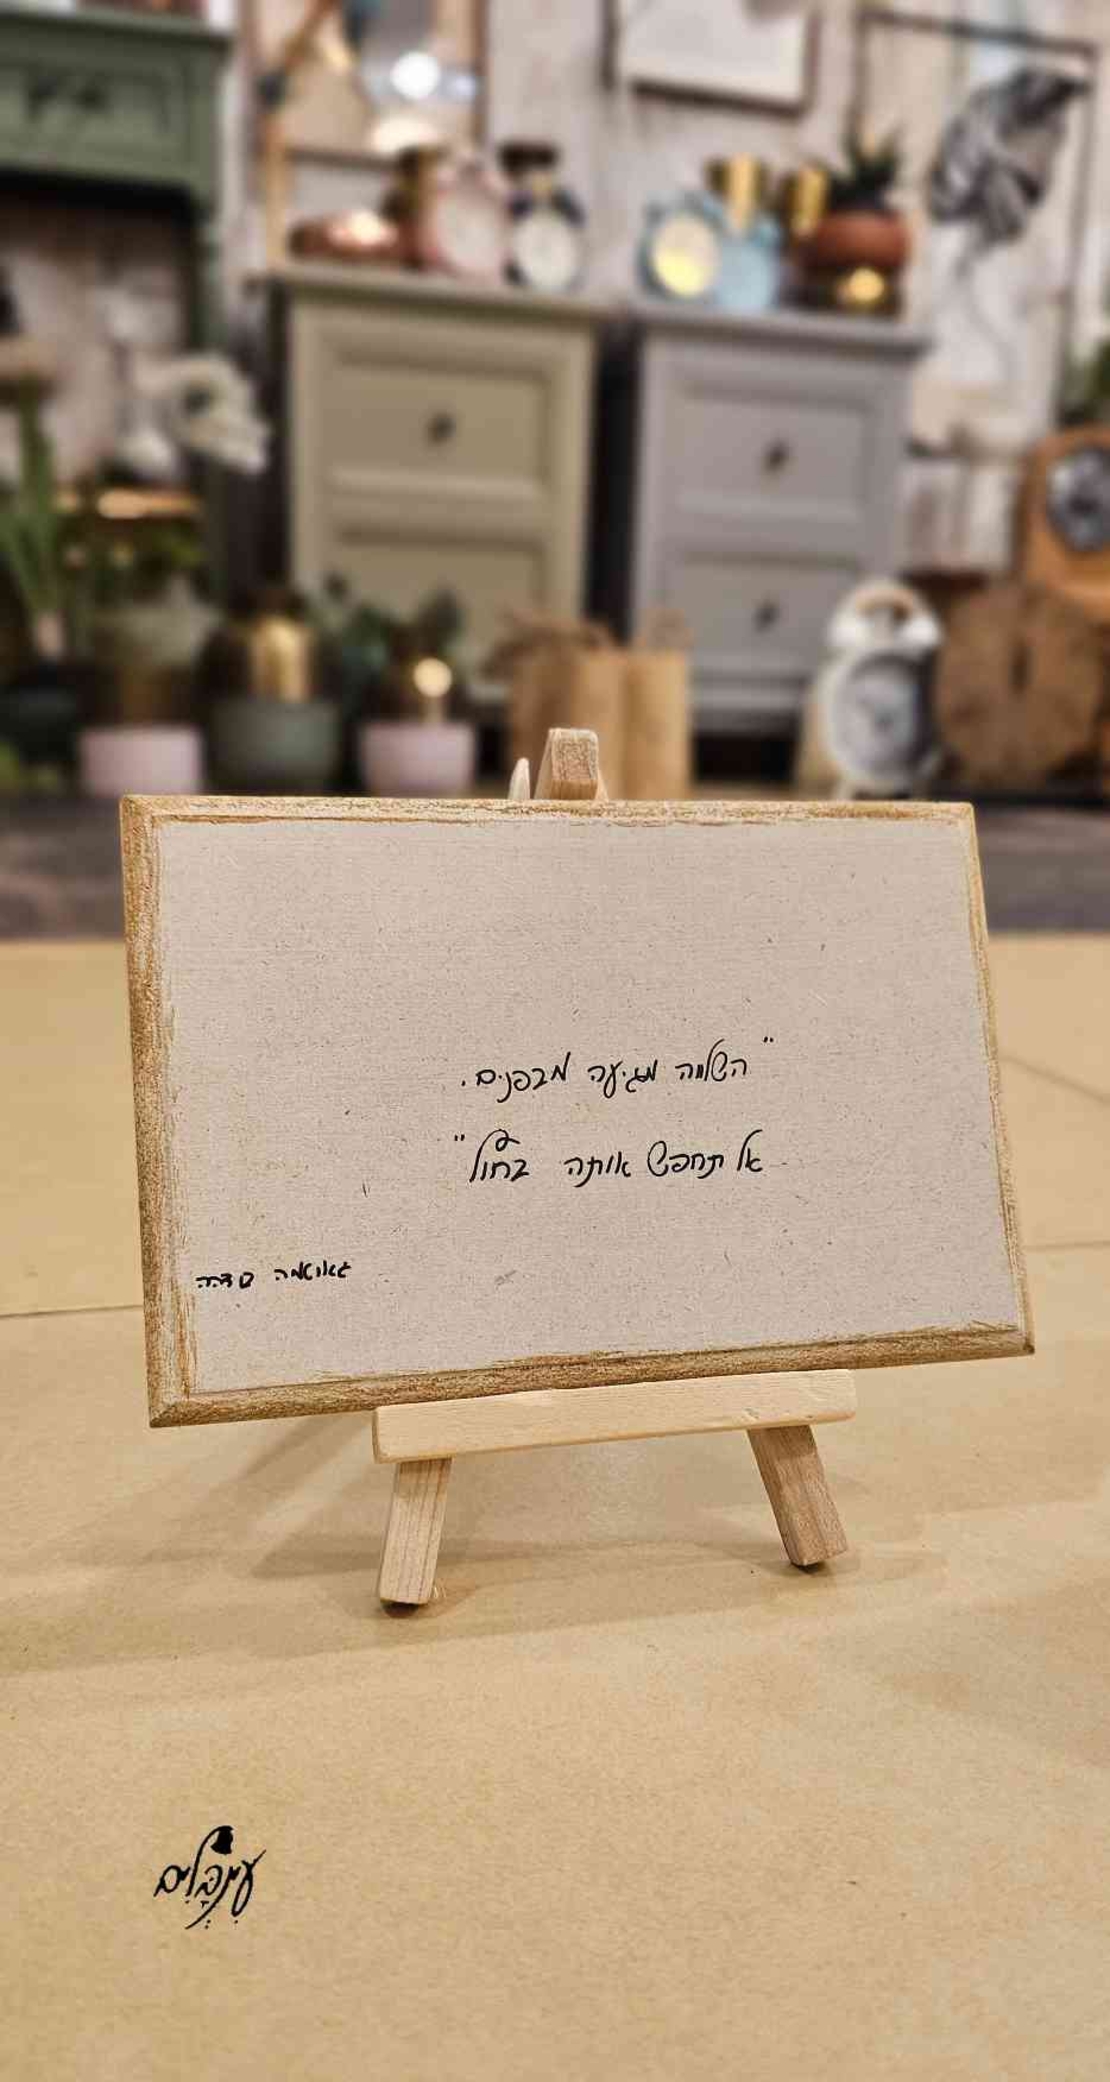 "השלווה מגיעה מבפנים.
אל תחפש אותה בחוץ"
גאוטמה בודהה